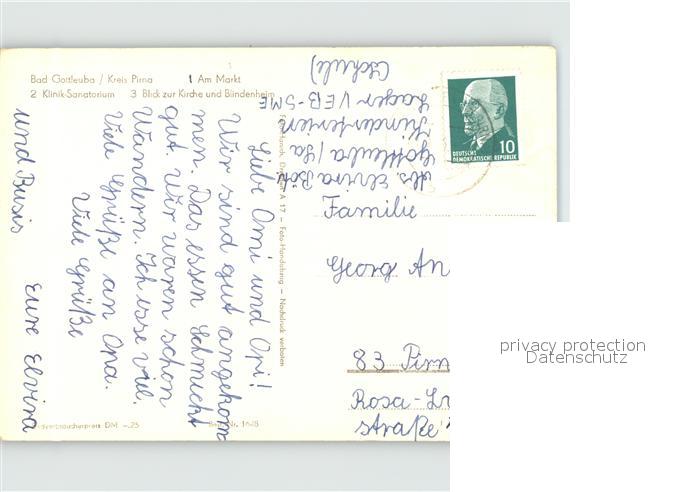 Bad Gottleuba / Kreis Pirna 1 Am Markt
2 Klinik-Sanatorium 3 Blick zur Kirche und Blindenheim
Liebe Omi und Opi!
Wir sind gut angekom
men. Das essen schmeckt
gut. Wir waren schon
Wandern. Ich esse viel.
Viele Grüße an Opa.
Viele Grüße
und Busis Eure Elvira
Abs Elvira
Gottleuba /Sa
Kinderferien
Lager VEB-SME
(Schule)
DEUTSCHE
DEMOKRATISCHE REPUBLIK
10
Familie
Georg An
83 Pirn
Rosa-Lu
straße
A 17 – Foto-Handabzug – Nachdruck verboten
DM –.25
privacy protection
Datenschutz